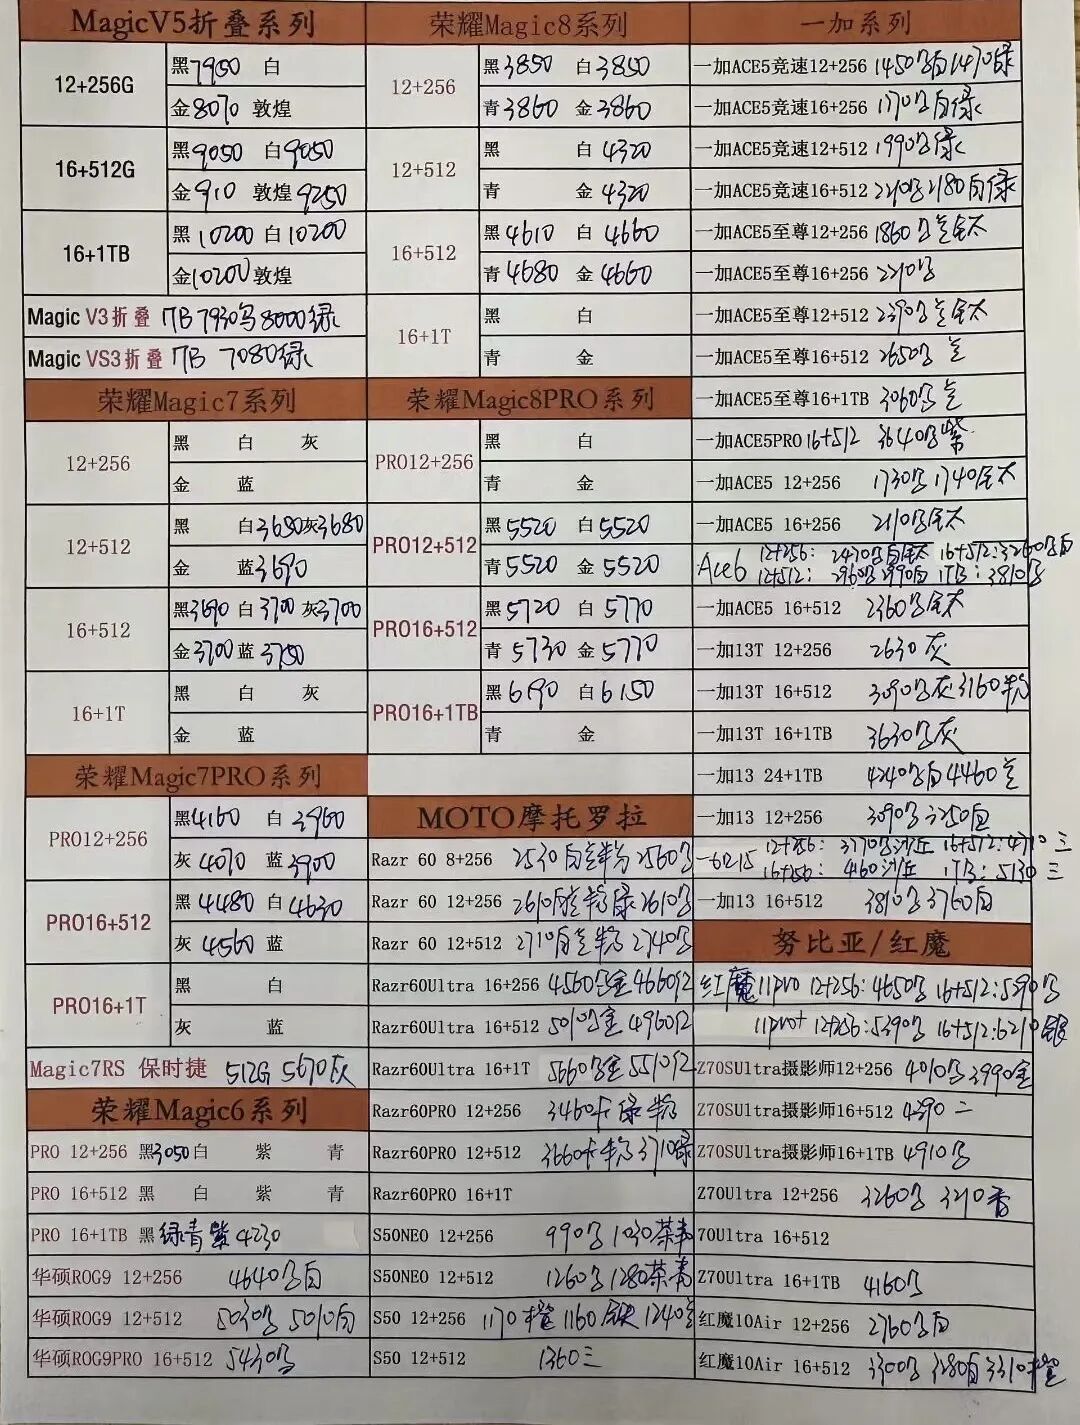 MagicV5折叠系列
12+256G
黑7950 白
金8070 敦煌
16+512G
黑9050 白9050
金910 敦煌9250
16+1TB
黑10200 白10200
金10200敦煌
Magic V3折叠 1TB 7930 8000绿
Magic VS3折叠 1TB 7080绿
荣耀Magic7系列
12+256
黑 白 灰
金 蓝
12+512
黑 白3680灰3680
金 蓝3690
16+512
黑3690 白3700 灰3700
金3700蓝3750
16+1T
黑 白 灰
金 蓝
荣耀Magic7PRO系列
PRO12+256
黑4160 白3960
灰4070 蓝3900
PRO16+512
黑4480 白4630
灰4560 蓝
PRO16+1T
黑 白
灰 蓝
Magic7RS 保时捷 512G 5670灰
荣耀Magic6系列
PRO 12+256 黑3050白 紫 青
PRO 16+512 黑 白 紫 青
PRO 16+1TB 黑 绿青紫4230
华硕ROG9 12+256 4640 白
华硕ROG9 12+512 5030 5010白
华硕ROG9PRO 16+512 5430
荣耀Magic8系列
12+256
黑3850 白3850
青3860 金3860
12+512
黑 白4320
青 金4320
16+512
黑4610 白4660
青4680 金4660
16+1T
黑 白
青 金
荣耀Magic8PRO系列
PRO12+256
黑 白
青 金
PRO12+512
黑5520 白5520
青5520 金5520
PRO16+512
黑5720 白5770
青5730 金5770
PRO16+1TB
黑6190 白6150
青 金
MOTO摩托罗拉
Razr 60 8+256 2530 2560
Razr 60 12+256 2610 绿2610
Razr 60 12+512 2710 2740
Razr60Ultra 16+256 4560 金4660红
Razr60Ultra 16+512 5010 金4960红
Razr60Ultra 16+1T 5660 金5510红
Razr60PRO 12+256 3460卡绿粉
Razr60PRO 12+512 3660卡粉3710绿
Razr60PRO 16+1T
S50NEO 12+256 990 1030茶青
S50NEO 12+512 1260 1280茶青
S50 12+256 1170橙 1160 1240
S50 12+512 1360三
一加系列
一加ACE5竞速12+256 1450 白1470绿
一加ACE5竞速16+256 1770 白绿
一加ACE5竞速12+512 1990 绿
一加ACE5竞速16+512 2210 2180白绿
一加ACE5至尊12+256 1860 兰钛
一加ACE5至尊16+256 2210
一加ACE5至尊12+512 2390 兰钛
一加ACE5至尊16+512 2650 兰
一加ACE5至尊16+1TB 3060 兰
一加ACE5PRO 16+512 3640 紫
一加ACE5 12+256 1730 1740钛
一加ACE5 16+256 2110 钛
Ace6 12+256: 2470 白钛 16+512:3260 白
12+512: 2960 2990白 1TB: 3810
一加ACE5 16+512 2360 钛
一加13T 12+256 2630灰
一加13T 16+512 3090 灰3160粉
一加13T 16+1TB 3630 灰
一加13 24+1TB 4240 白4460兰
一加13 12+256 3090 3250白
一加15 12+256: 3770 沙丘 16+512:4710三
16+256: 4160沙丘 1TB: 5130三
一加13 16+512 3810 3760白
努比亚/红魔
红魔11pro 12+256:4650 16+512:5290
11pro+ 12+256:5390 16+512:6210银
Z70SUltra摄影师12+256 4010 3990金
Z70SUltra摄影师16+512 4390二
Z70SUltra摄影师16+1TB 4910
Z70Ultra 12+256 3260 3210
70Ultra 16+512
Z70Ultra 16+1TB 4160
红魔10Air 12+256 2760 白
红魔10Air 16+512 3300 3280白3310橙